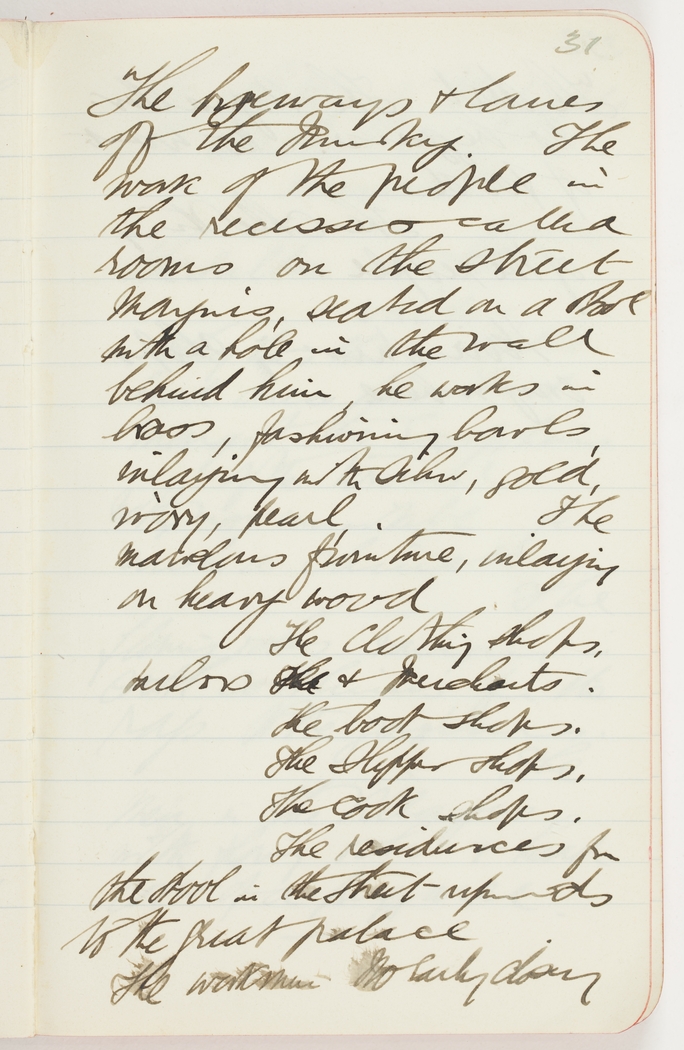 31
The byeways & lanes
of the Mousky. The
work of the people in
the recesses called
rooms on the street
margins, seated on a stool
with a hole in the wall
behind him, he works in
brass, fashioning bowls,
inlaying with silver, gold,
ivory, pearl. The
marvelous furniture, inlaying
on heavy wood
The clothing shops,
tailors & merchants.
the boot shops.
The slipper shops,
The cook shops.
The residences from
the stool in the street upwards
to the great palace
The workmen No early closing